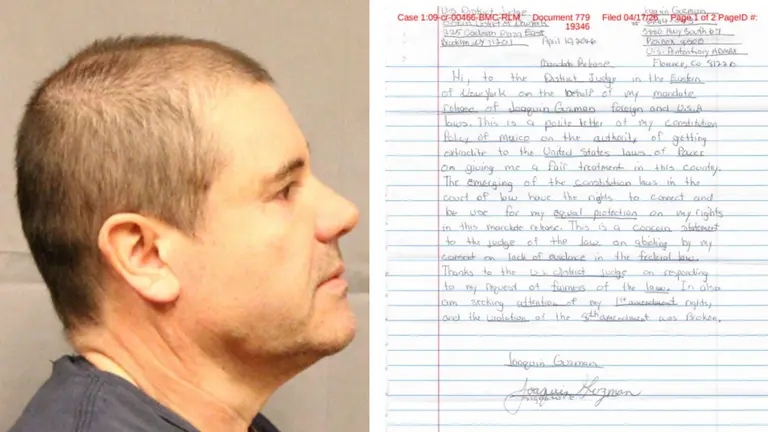 Case 1:09-cr-00466-BMC-RLM Document 779 Filed 04/17/26 Page 1 of 2 PageID #:
19346
U.S. District Judge
225 Cadman Plaza East
Brooklyn NY 11201
April 10 2026
Joaquin Guzman
5880 Hwy South 67
Florence, Co 81226
Mandate Release
Hi, to the District Judge in the Eastern
of New York on the behalf of my mandate
release of Joaquin Guzman foreign and U.S.A
laws. This is a polite letter of my constitution
Policy of mexico on the authority of getting
to the United States laws of Power
on giving me a fair treatment in this county.
The emerging of the constitution laws in the
court of law have the rights to connect and
be use for my equal protection on my rights
in this mandate release. This is a concern statement
to the judge of the law on by my
consent on lack of evidence in the federal law.
Thanks to the U.S District judge on responding
to my request of fairness of the laws. In also
am seeking attention of my 1st amendment rights,
and the violation of the 8th amendment was Broken.
Joaquin Guzman
Joaquin Guzman